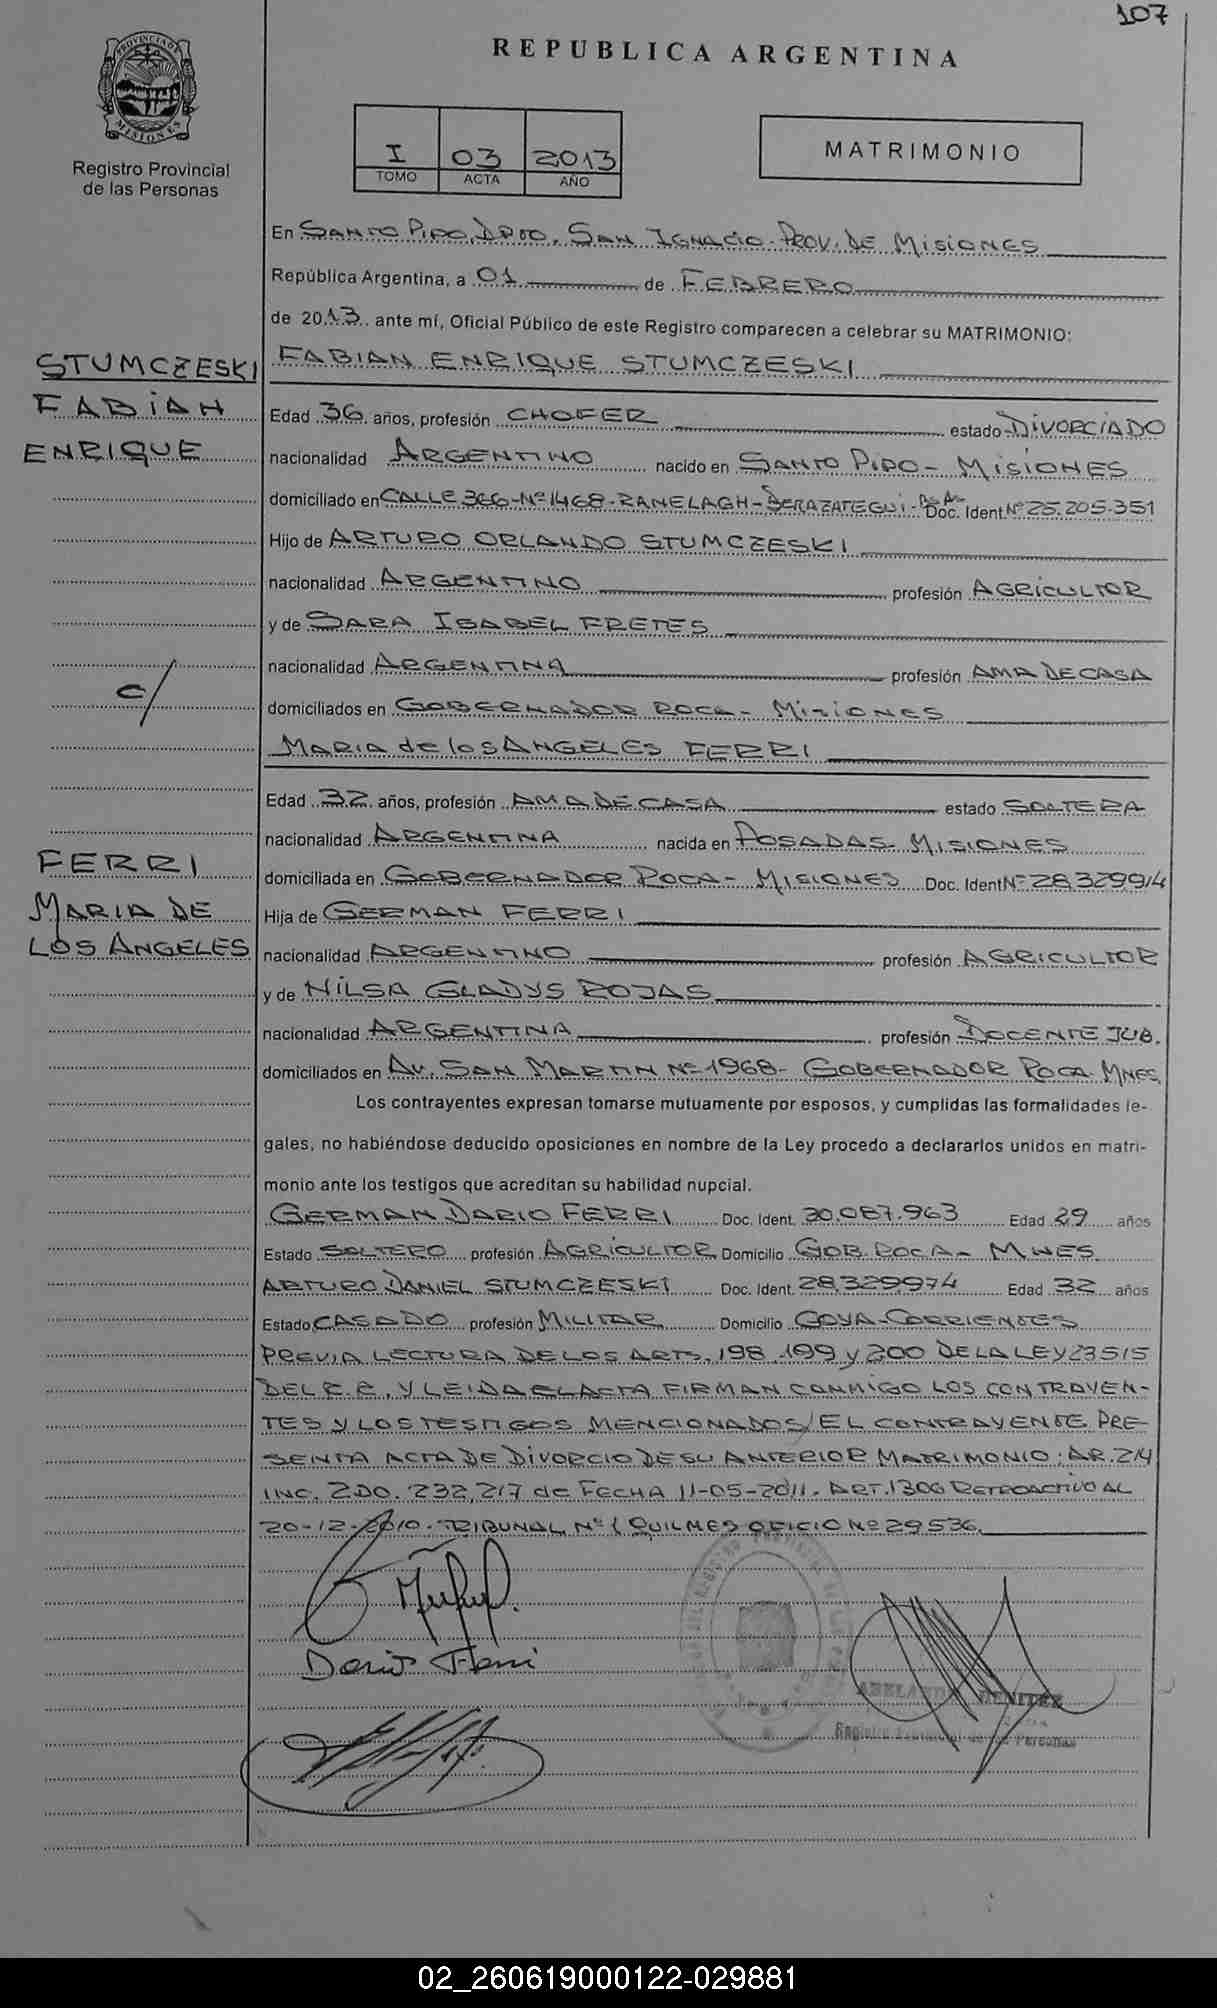 107
REPUBLICA ARGENTINA
PROVINCIA DE MISIONES
Registro Provincial
de las Personas
I 03 2013
TOMO ACTA AÑO
MATRIMONIO
En SANTO PIPO, DPTO. SAN IGNACIO. PROV. DE MISIONES
República Argentina, a 01 de FEBRERO
de 2013 ante mí, Oficial Público de este Registro comparecen a celebrar su MATRIMONIO:
STUMCZESKI
FABIAN
ENRIQUE
FABIAN ENRIQUE STUMCZESKI
Edad 36 años, profesión CHOFER estado DIVORCIADO
nacionalidad ARGENTINO nacido en SANTO PIPO - MISIONES
domiciliado en CALLE 366-Nº1468-RANELAGH-BERAZATEGUI-Bs As. Doc. Ident. Nº 25.205.351
Hijo de ARTURO ORLANDO STUMCZESKI
nacionalidad ARGENTINO profesión AGRICULTOR
y de SARA ISABEL FRETES
nacionalidad ARGENTINA profesión AMA DE CASA
c/
domiciliados en GOBERNADOR ROCA - MISIONES
MARIA de los ANGELES FERRI
Edad 32 años, profesión AMA DE CASA estado SOLTERA
nacionalidad ARGENTINA nacida en POSADAS - MISIONES
FERRI
MARIA DE
LOS ANGELES
domiciliada en GOBERNADOR ROCA - MISIONES Doc. Ident Nº 28.329.914
Hija de GERMAN FERRI
nacionalidad ARGENTINO profesión AGRICULTOR
y de NILSA GLADYS ROJAS
nacionalidad ARGENTINA profesión DOCENTE JUB.
domiciliados en AV. SAN MARTIN Nº 1968 - GOBERNADOR ROCA. MNES.
Los contrayentes expresan tomarse mutuamente por esposos, y cumplidas las formalidades le-
gales, no habiéndose deducido oposiciones en nombre de la Ley procedo a declararlos unidos en matri-
monio ante los testigos que acreditan su habilidad nupcial.
GERMAN DARIO FERRI Doc. Ident. 30.087.963 Edad 29 años
Estado SOLTERO profesión AGRICULTOR Domicilio GOB. ROCA - MNES
ARTURO DANIEL STUMCZESKI Doc. Ident. 28.329.974 Edad 32 años
Estado CASADO profesión MILITAR Domicilio GOYA - CORRIENTES
PREVIA LECTURA DE LOS ARTS. 198, 199 y 200 DE LA LEY 23515
DEL C.C. Y LEIDA EL ACTA FIRMAN CONMIGO LOS CONTRAYEN-
TES Y LOS TESTIGOS MENCIONADOS/ EL CONTRAYENTE PRE-
SENTA ACTA DE DIVORCIO DE SU ANTERIOR MATRIMONIO: AR. 214
INC. 2DO. 232, 217 de FECHA 11-05-2011. ART. 1306 RETROACTIVO AL
20-12-2010. TRIBUNAL Nº 1 QUILMES OFICIO Nº 29536.
Dario Ferri
BENITEZ
Registro Provincial de las Personas
02_260619000122-029881